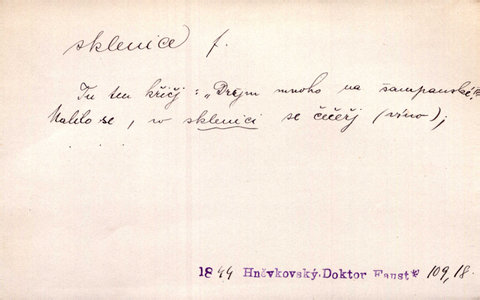 sklenice f.
Tu ten křičj: „Drejm mnoho na šampanské!“
Nalilo se, w sklenici se čeřj (víno);
1844 Hněvkovský, Doktor Faust 109, 18.